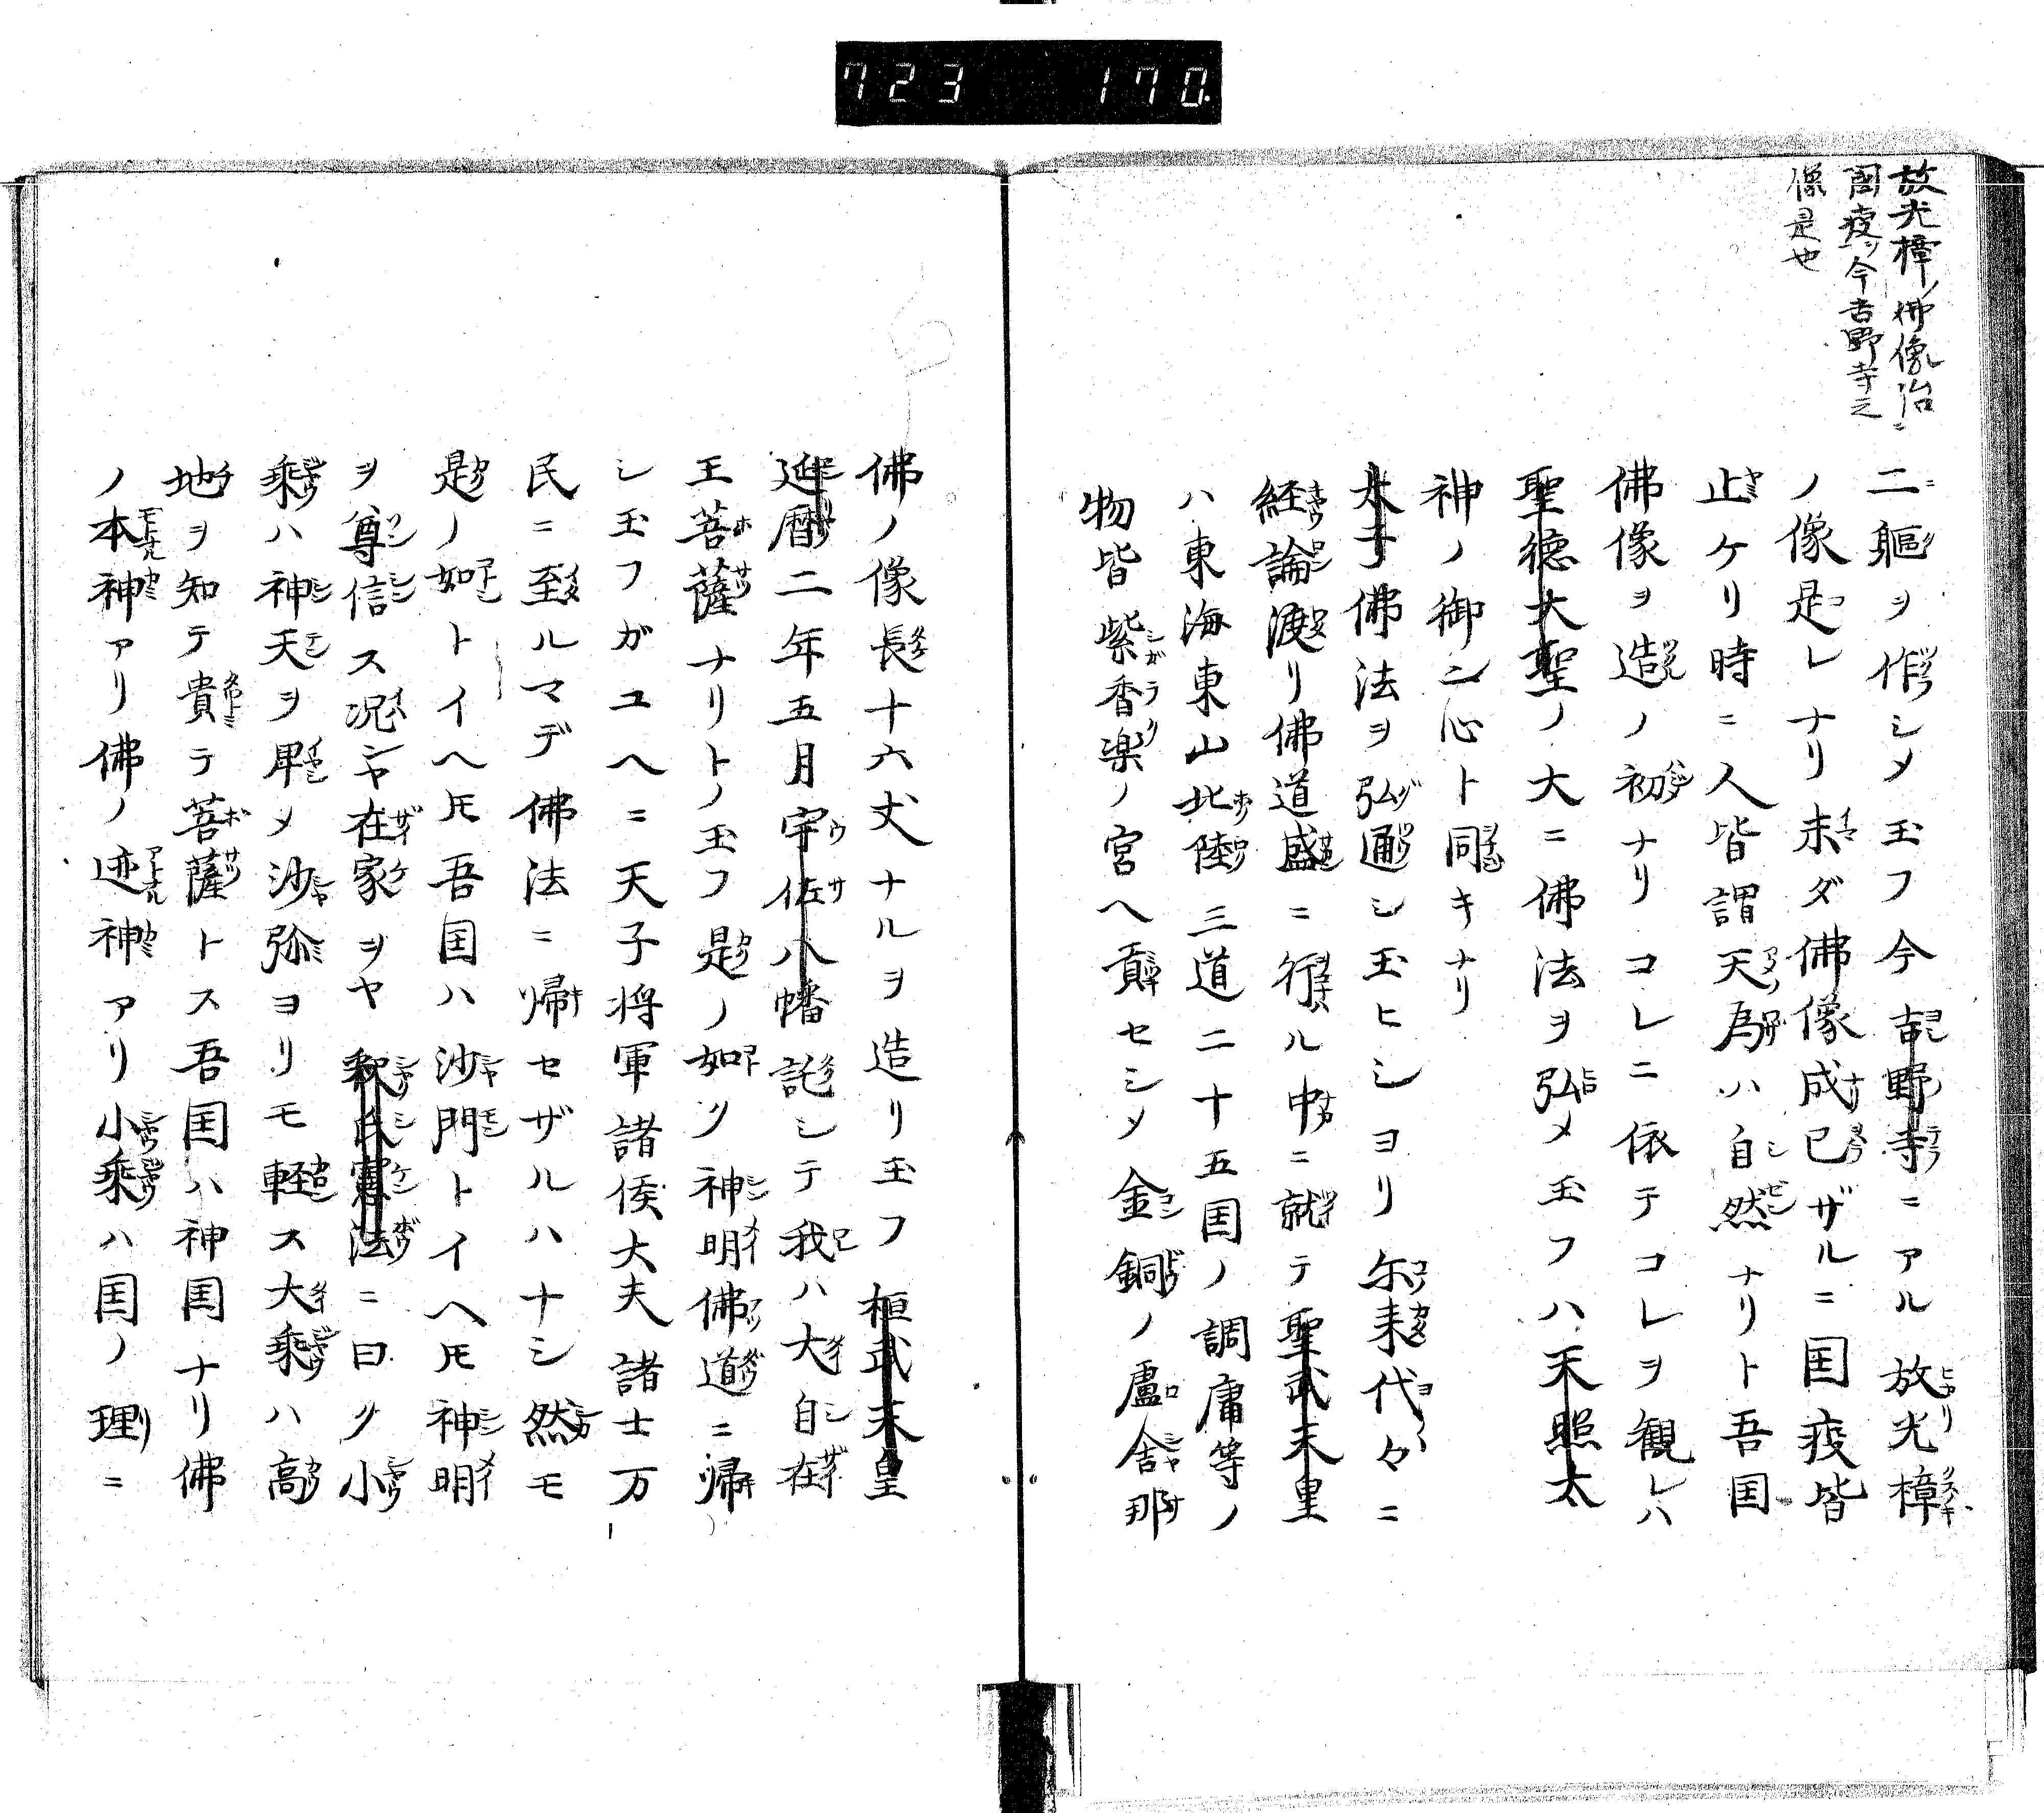 723 170.
放光樟ノ佛像治ニ
国疫ヲ今吉野寺之
像是也
二軀ヲ作シメ玉フ今吉野寺ニアル放光樟
ノ像是レナリ未ダ佛像成已ザルニ国疫皆
止ケリ時ニ人皆謂天為ハ自然ナリト吾国
佛像ヲ造ノ初ナリコレニ依テコレヲ観レハ
聖徳大聖ノ大ニ佛法ヲ弘メ玉フハ天照太
神ノ御心ト同キナリ
太子佛法ヲ弘通シ玉ヒシヨリ尓来代々ニ
経論渡リ佛道盛ニ行ル中ニ就テ聖武天皇
ハ東海東山北陸三道二十五国ノ調庸等ノ
物皆紫香楽ノ宮ヘ貢セシメ金銅ノ盧舎那
佛ノ像長十六丈ナルヲ造リ玉フ桓武天皇
延暦二年五月宇佐八幡託シテ我ハ大自在
王菩薩ナリトノ玉フ是ノ如ク神明佛道ニ帰
シ玉フガユヘニ天子将軍諸侯大夫諸士万
民ニ至ルマデ佛法ニ帰セザルハナシ然モ
是ノ如トイヘ𪜈吾国ハ沙門トイヘ𪜈神明
ヲ尊信ス况ヤ在家ヲヤ釈氏憲法ニ曰ク小
乗ハ神天ヲ卑メ沙弥ヨリモ軽ス大乗ハ高
地ヲ知テ貴テ菩薩トス吾国ハ神国ナリ佛
ノ本神アリ佛ノ迹神アリ小乗ハ国ノ理ニ